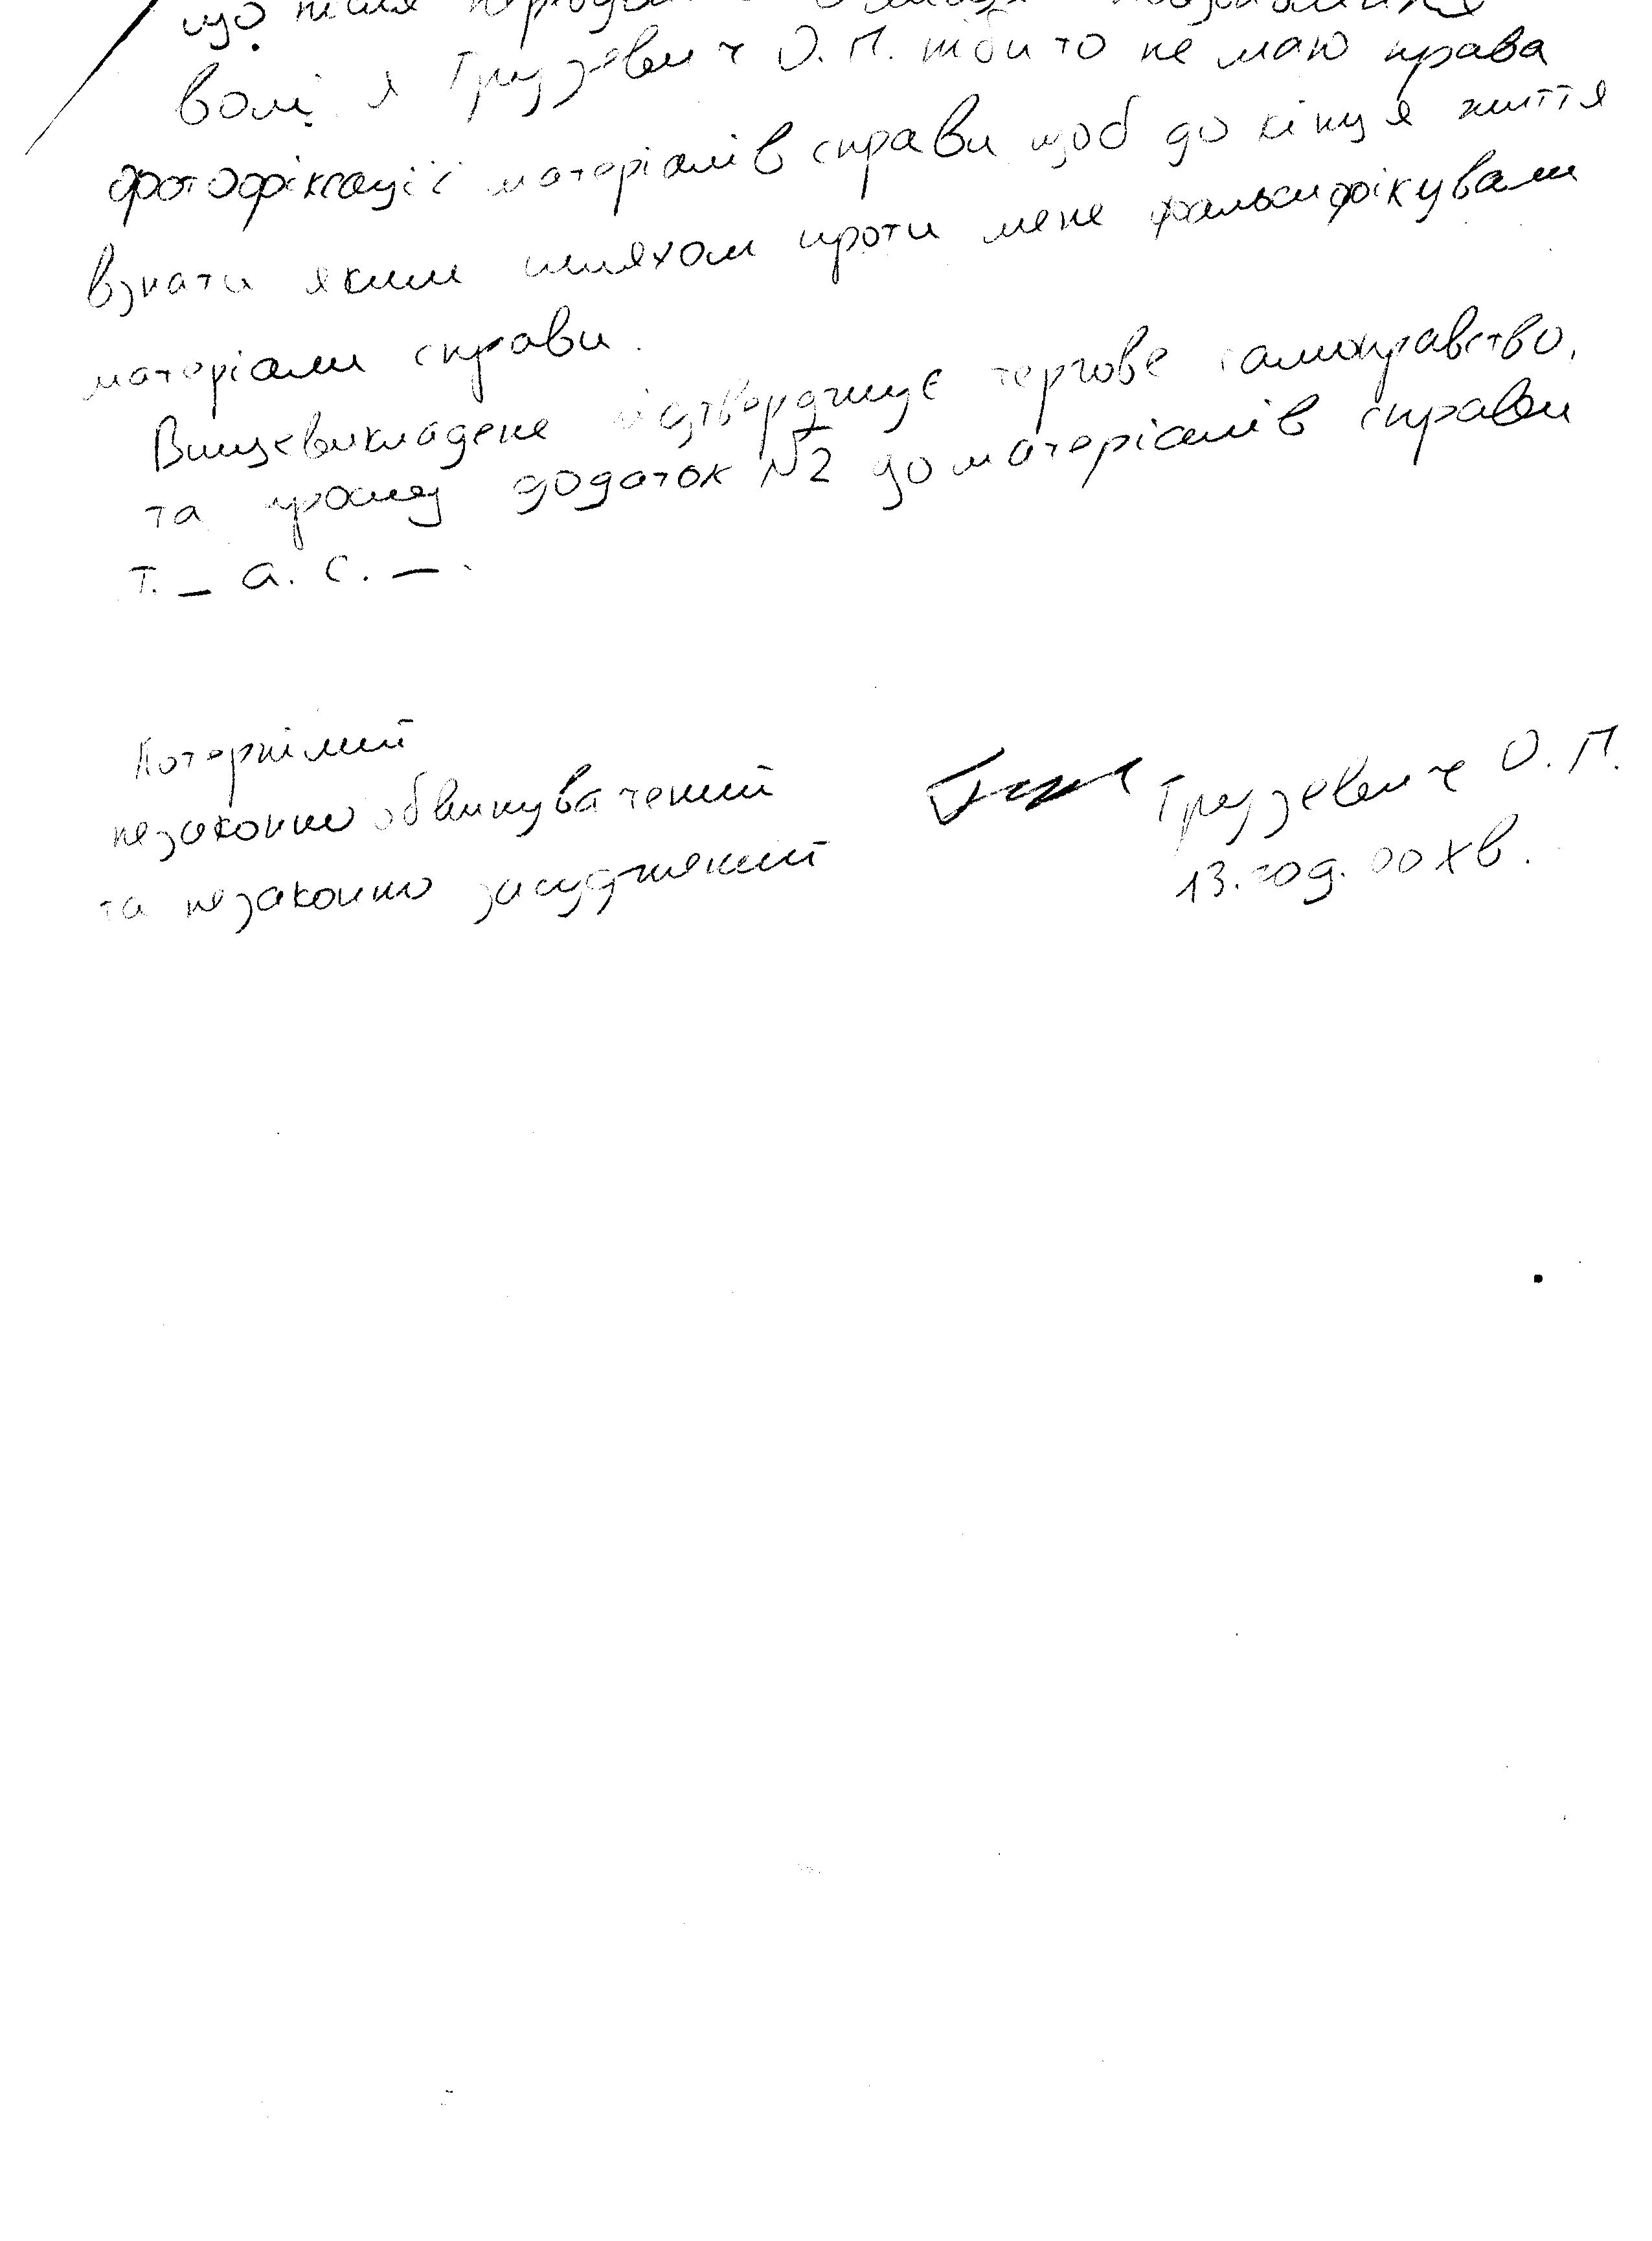 що після
волі я Груздевич О. П. нібито не маю права
фотофіксації матеріалів справи щоб до кінця життя
взнати яким шляхом проти мене фальсифікували
матеріали справи.
Вищевикладене підтверджує чергове самоправство,
та прошу додаток №2 до матеріалів справи
т. _ а. с. _.
Потерпілий
незаконно обвинувачений
та незаконно засуджений
О. П.
13. год. 00 хв.